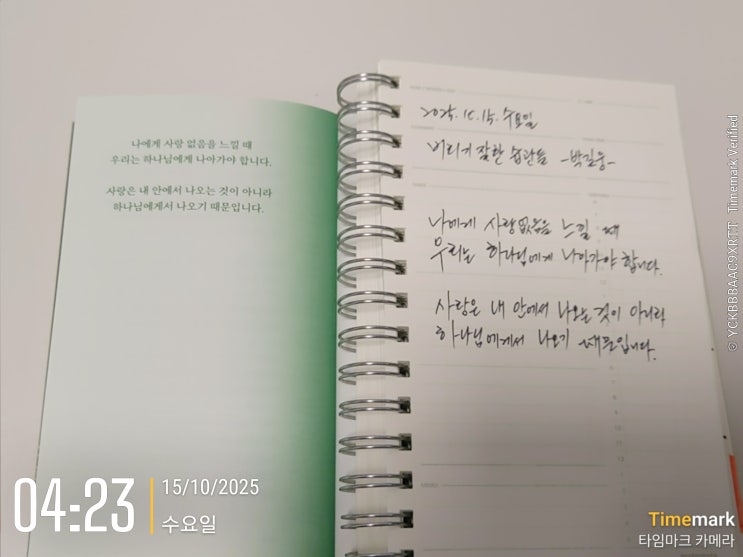 나에게 사랑 없음을 느낄 때
우리는 하나님에게 나아가야 합니다.
사랑은 내 안에서 나오는 것이 아니라
하나님에게서 나오기 때문입니다.
2025. 10. 15. 수요일
버리기 잘한 습관들 -박길웅-
나에게 사랑없음을 느낄 때
우리는 하나님에게 나아가야 합니다.
사랑은 내 안에서 나오는 것이 아니라
하나님에게서 나오기 때문입니다.
MEMO
04:23
15/10/2025
수요일
Timemark
타임마크 카메라
© YCKBBBAAC9XRTT Timemark Verified